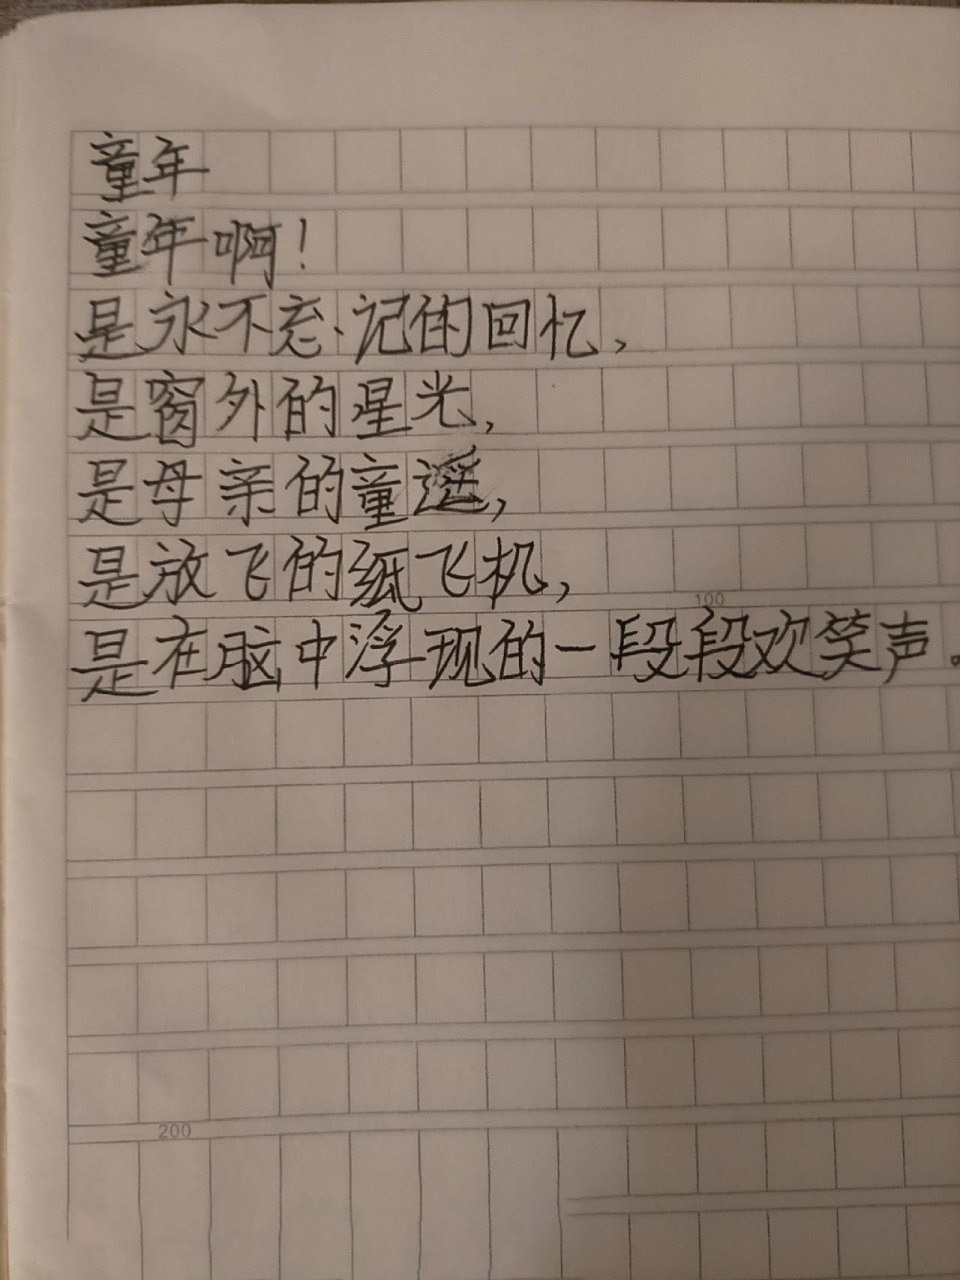 童年
童年啊！
是永不忘记的回忆，
是窗外的星光，
是母亲的童谣，
是放飞的纸飞机，
100
是在脑中浮现的一段段欢笑声。
200